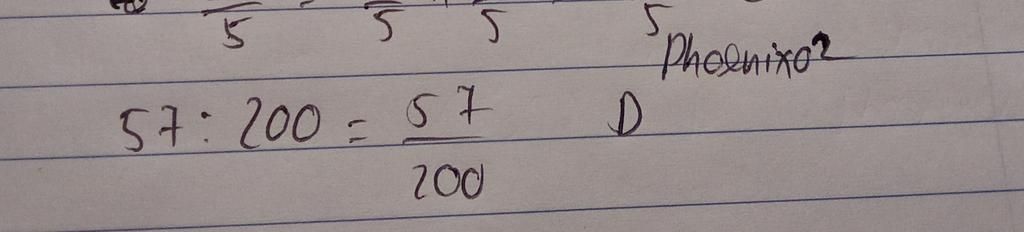 5 5 5 5
Phoenixo2
57 : 200 = 57/200 D